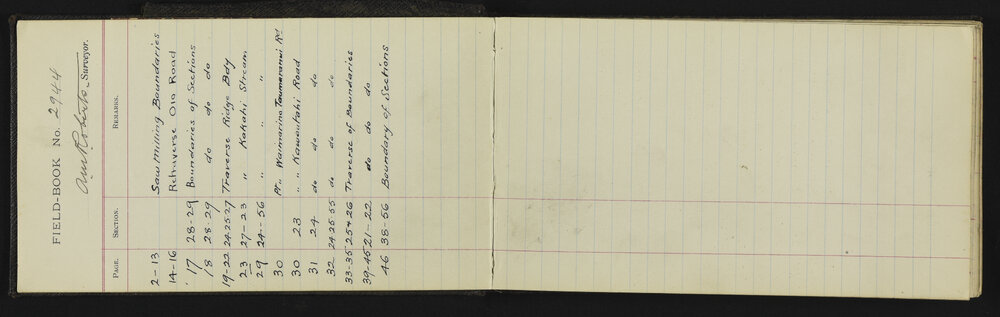 FIELD-BOOK No. 2944
A.M. Roberts, Surveyor.
PAGE. SECTION. REMARKS.
2-13 Sawmilling Boundaries
14-16 Retraverse Old Road
17 28-29 Boundaries of Sections
18 28-29 do do do
19-22 24.25.27 Traverse Ridge Bdy
23 27-23 " Kakahi Stream
29 24-56 " " "
30 Waimarino Taumaranui Rd
30 23 " " Kawautahi Road
31 24 do do do
32 24 25 55 do do do
33-35 25+26 Traverse of Boundaries
39-45 21-22 do do do
46 38-56 Boundary of Sections